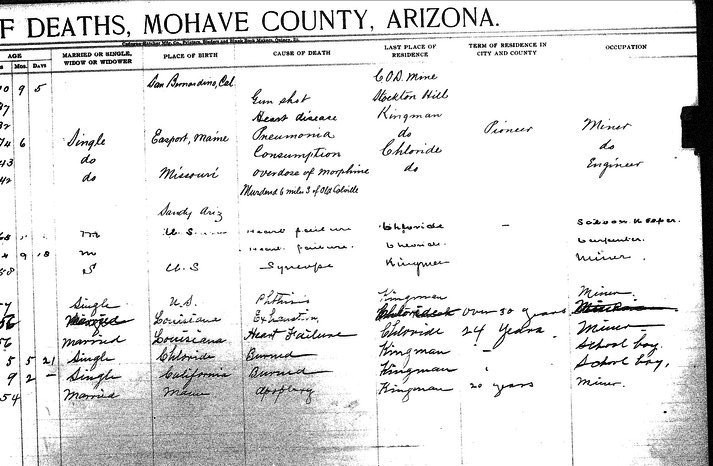 F DEATHS, MOHAVE COUNTY, ARIZONA.
AGE MARRIED OR SINGLE, WIDOW OR WIDOWER PLACE OF BIRTH CAUSE OF DEATH LAST PLACE OF RESIDENCE TERM OF RESIDENCE IN CITY AND COUNTY OCCUPATION
Mos. Days
10 9 5 San Bernardino, Cal. C.O.D. Mine
97 Gun shot Stockton Hill
Heart disease Kingman
74 6 Single Easport, Maine Pneumonia do Pioneer Miner
43 do Consumption Chloride do
42 do Missouri overdose of Morphine do Engineer
Murdered 6 miles of Old
Sandy Ariz
m U.S. failure Chloride - Saloon Keeper.
9 18 m failure. Chloride. Carpenter
58 S U.S Syncope Kingman Miner
Single U.S. Phthisis Kingman Miner
56 Louisiana Exhaustion over 30 years
56 Married Louisiana Heart Failure Chloride 24 Years. Miner
5 5 21 Single Chloride Burned Kingman - School boy.
9 2 - Single California Burned Kingman School boy,
54 Married Maine apoplexy Kingman 20 years Miner.